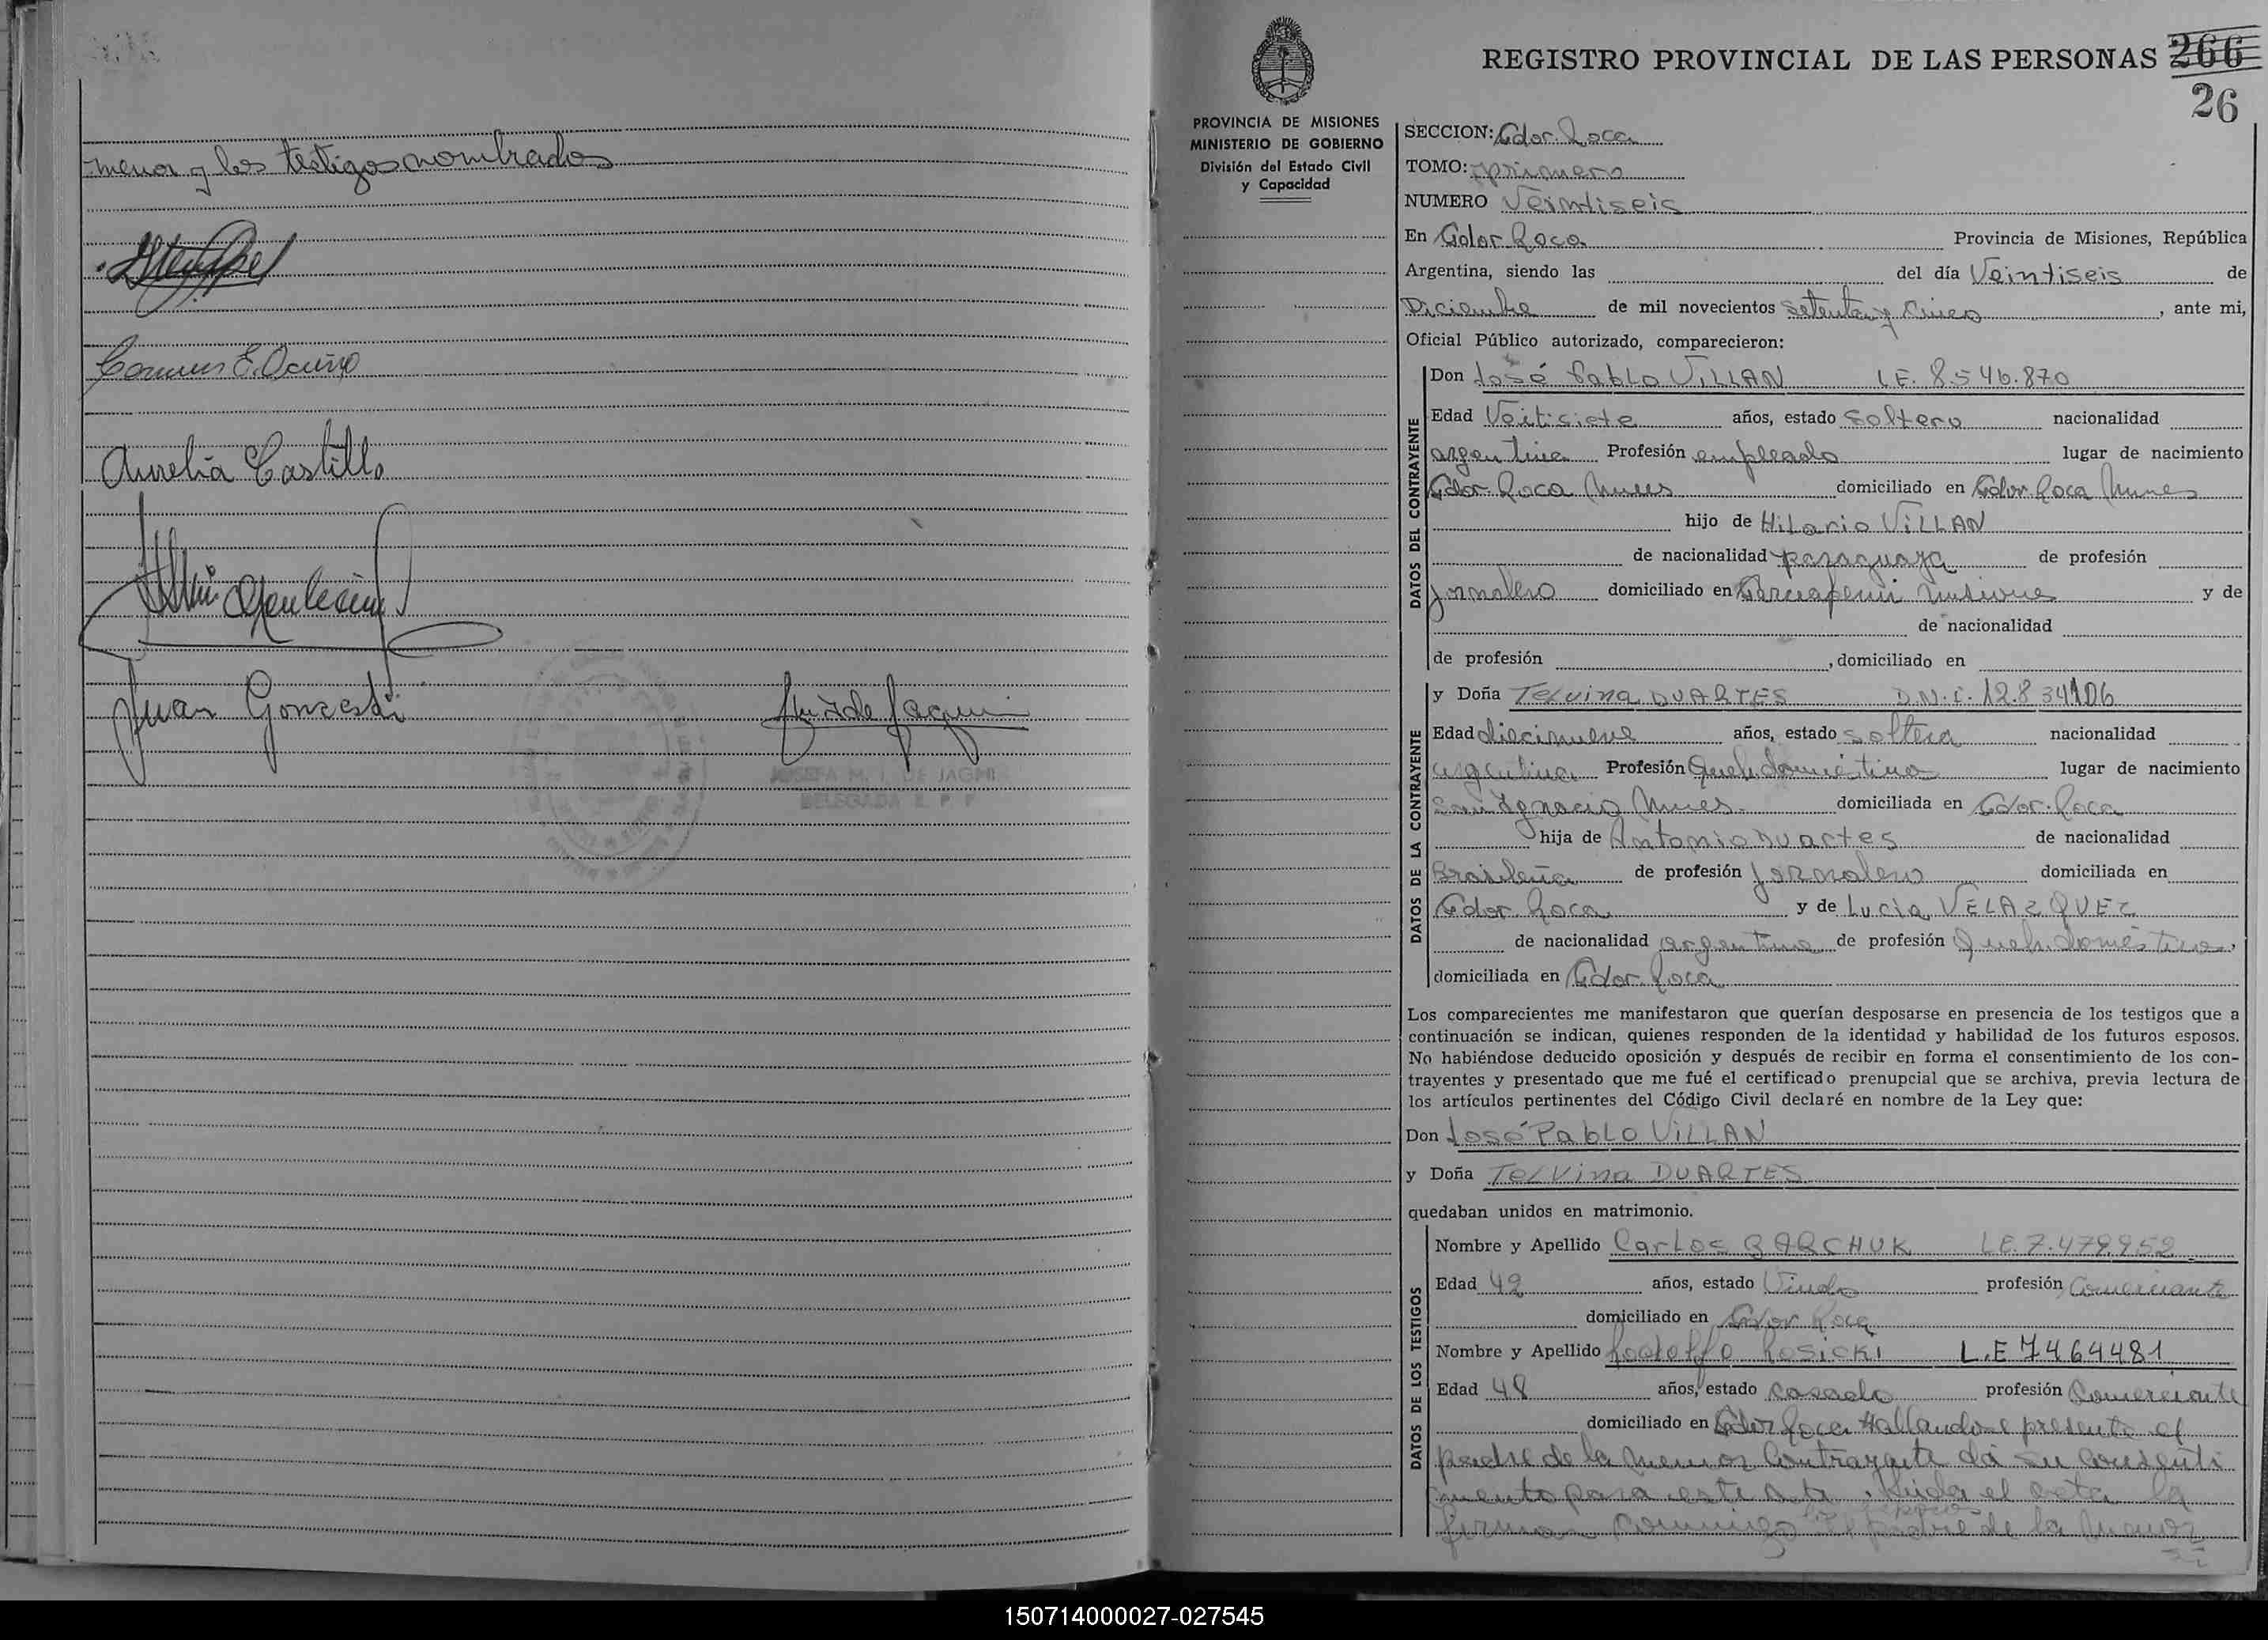 menor y los testigos nombrados
Aurelia Castillo
Juan
JOSEFA M. I. DE JAGMI
DELEGADA R. P. P.
REGISTRO PROVINCIAL DE LAS PERSONAS 266
26
PROVINCIA DE MISIONES
MINISTERIO DE GOBIERNO
División del Estado Civil
y Capacidad
SECCION: Gdor. Roca
TOMO: primero
NUMERO Veintiseis
En Gdor Roca Provincia de Misiones, República
Argentina, siendo las del día Veintiseis de
Diciembre de mil novecientos setenta y cinco, ante mi,
Oficial Público autorizado, comparecieron:
DATOS DEL CONTRAYENTE
Don José Pablo ViLLAN LE. 8.546.870
Edad Veitisiete años, estado soltero nacionalidad
argentina Profesión empleado lugar de nacimiento
Gdor Roca domiciliado en Gdor. Roca
hijo de Hilario ViLLAN
de nacionalidad paraguaya de profesión
jornalero domiciliado en y de
de nacionalidad
de profesión , domiciliado en
DATOS DE LA CONTRAYENTE
y Doña Telvina DUARTES D.N.I. 12.834106
Edad diecinueve años, estado soltera nacionalidad
argentina Profesión Queh. domésticos lugar de nacimiento
San Ignacio domiciliada en Gdor. Roca
hija de Antonio Duartes de nacionalidad
Brasileña de profesión Jornalero domiciliada en
Gdor. Roca y de Lucia VELAZQUEZ
de nacionalidad argentina de profesión Queh. domésticos,
domiciliada en Gdor. Roca
Los comparecientes me manifestaron que querían desposarse en presencia de los testigos que a
continuación se indican, quienes responden de la identidad y habilidad de los futuros esposos.
No habiéndose deducido oposición y después de recibir en forma el consentimiento de los con-
trayentes y presentado que me fué el certificado prenupcial que se archiva, previa lectura de
los artículos pertinentes del Código Civil declaré en nombre de la Ley que:
Don José Pablo ViLLAN
y Doña TeLVina DUARTES
quedaban unidos en matrimonio.
DATOS DE LOS TESTIGOS
Nombre y Apellido Carlos BARCHUK LE. 7.479.952
Edad 42 años, estado Viudo profesión Comerciante
domiciliado en Gdor Roca
Nombre y Apellido Rodolfo Rosicki L.E 7464481
Edad 48 años, estado casado profesión Comerciante
domiciliado en Gdor Roca Hallandose presente el
padre de la menor Contrayente dá su consenti
miento para este acto. Leida el acta la
firman conmigo el padre de la menor
150714000027-027545